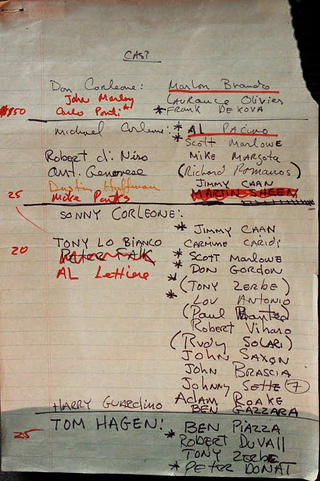 CAST
Don Corleone: Marlon Brando
John Marley Laurance Olivier
Carlo Ponti * Frank DeKova
Michael Corleone: * AL PACINO
* Scott Marlowe
Robert di Niro Mike Margota
Ant. Genovese (Richard Romanos)
Dustin Hoffman JIMMY CAAN
25 Mike Parks MARTIN SHEEN
SONNY CORLEONE:
* JIMMY CAAN
TONY LO BIANCO CARMINE CARIDI
20 PETER FALK * Scott Marlowe
AL Lettiere * DON GORDON
* (TONY ZERBE)
* LOU ANTONIO
(Paul Banteo)
Robert Viharo
(Rudy SOLARI)
JOHN SAXON
JOHN BRASCIA
Johnny Sette (7)
Adam Roake
HARRY GUARDINO BEN GAZZARA
TOM HAGEN: * BEN PIAZZA
25 * ROBERT DUVALL
TONY ZERBE
* PETER DONAT